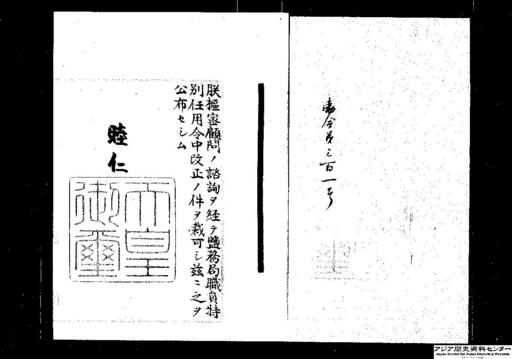 勅令第三百一号
朕樞密顧問ノ諮詢ヲ経テ鹽務局職員特
別任用令中改正ノ件ヲ裁可シ茲ニ之ヲ
公布セシム
睦仁
天皇
御璽
アジア歴史資料センター
Japan Center for Asian Historical Records